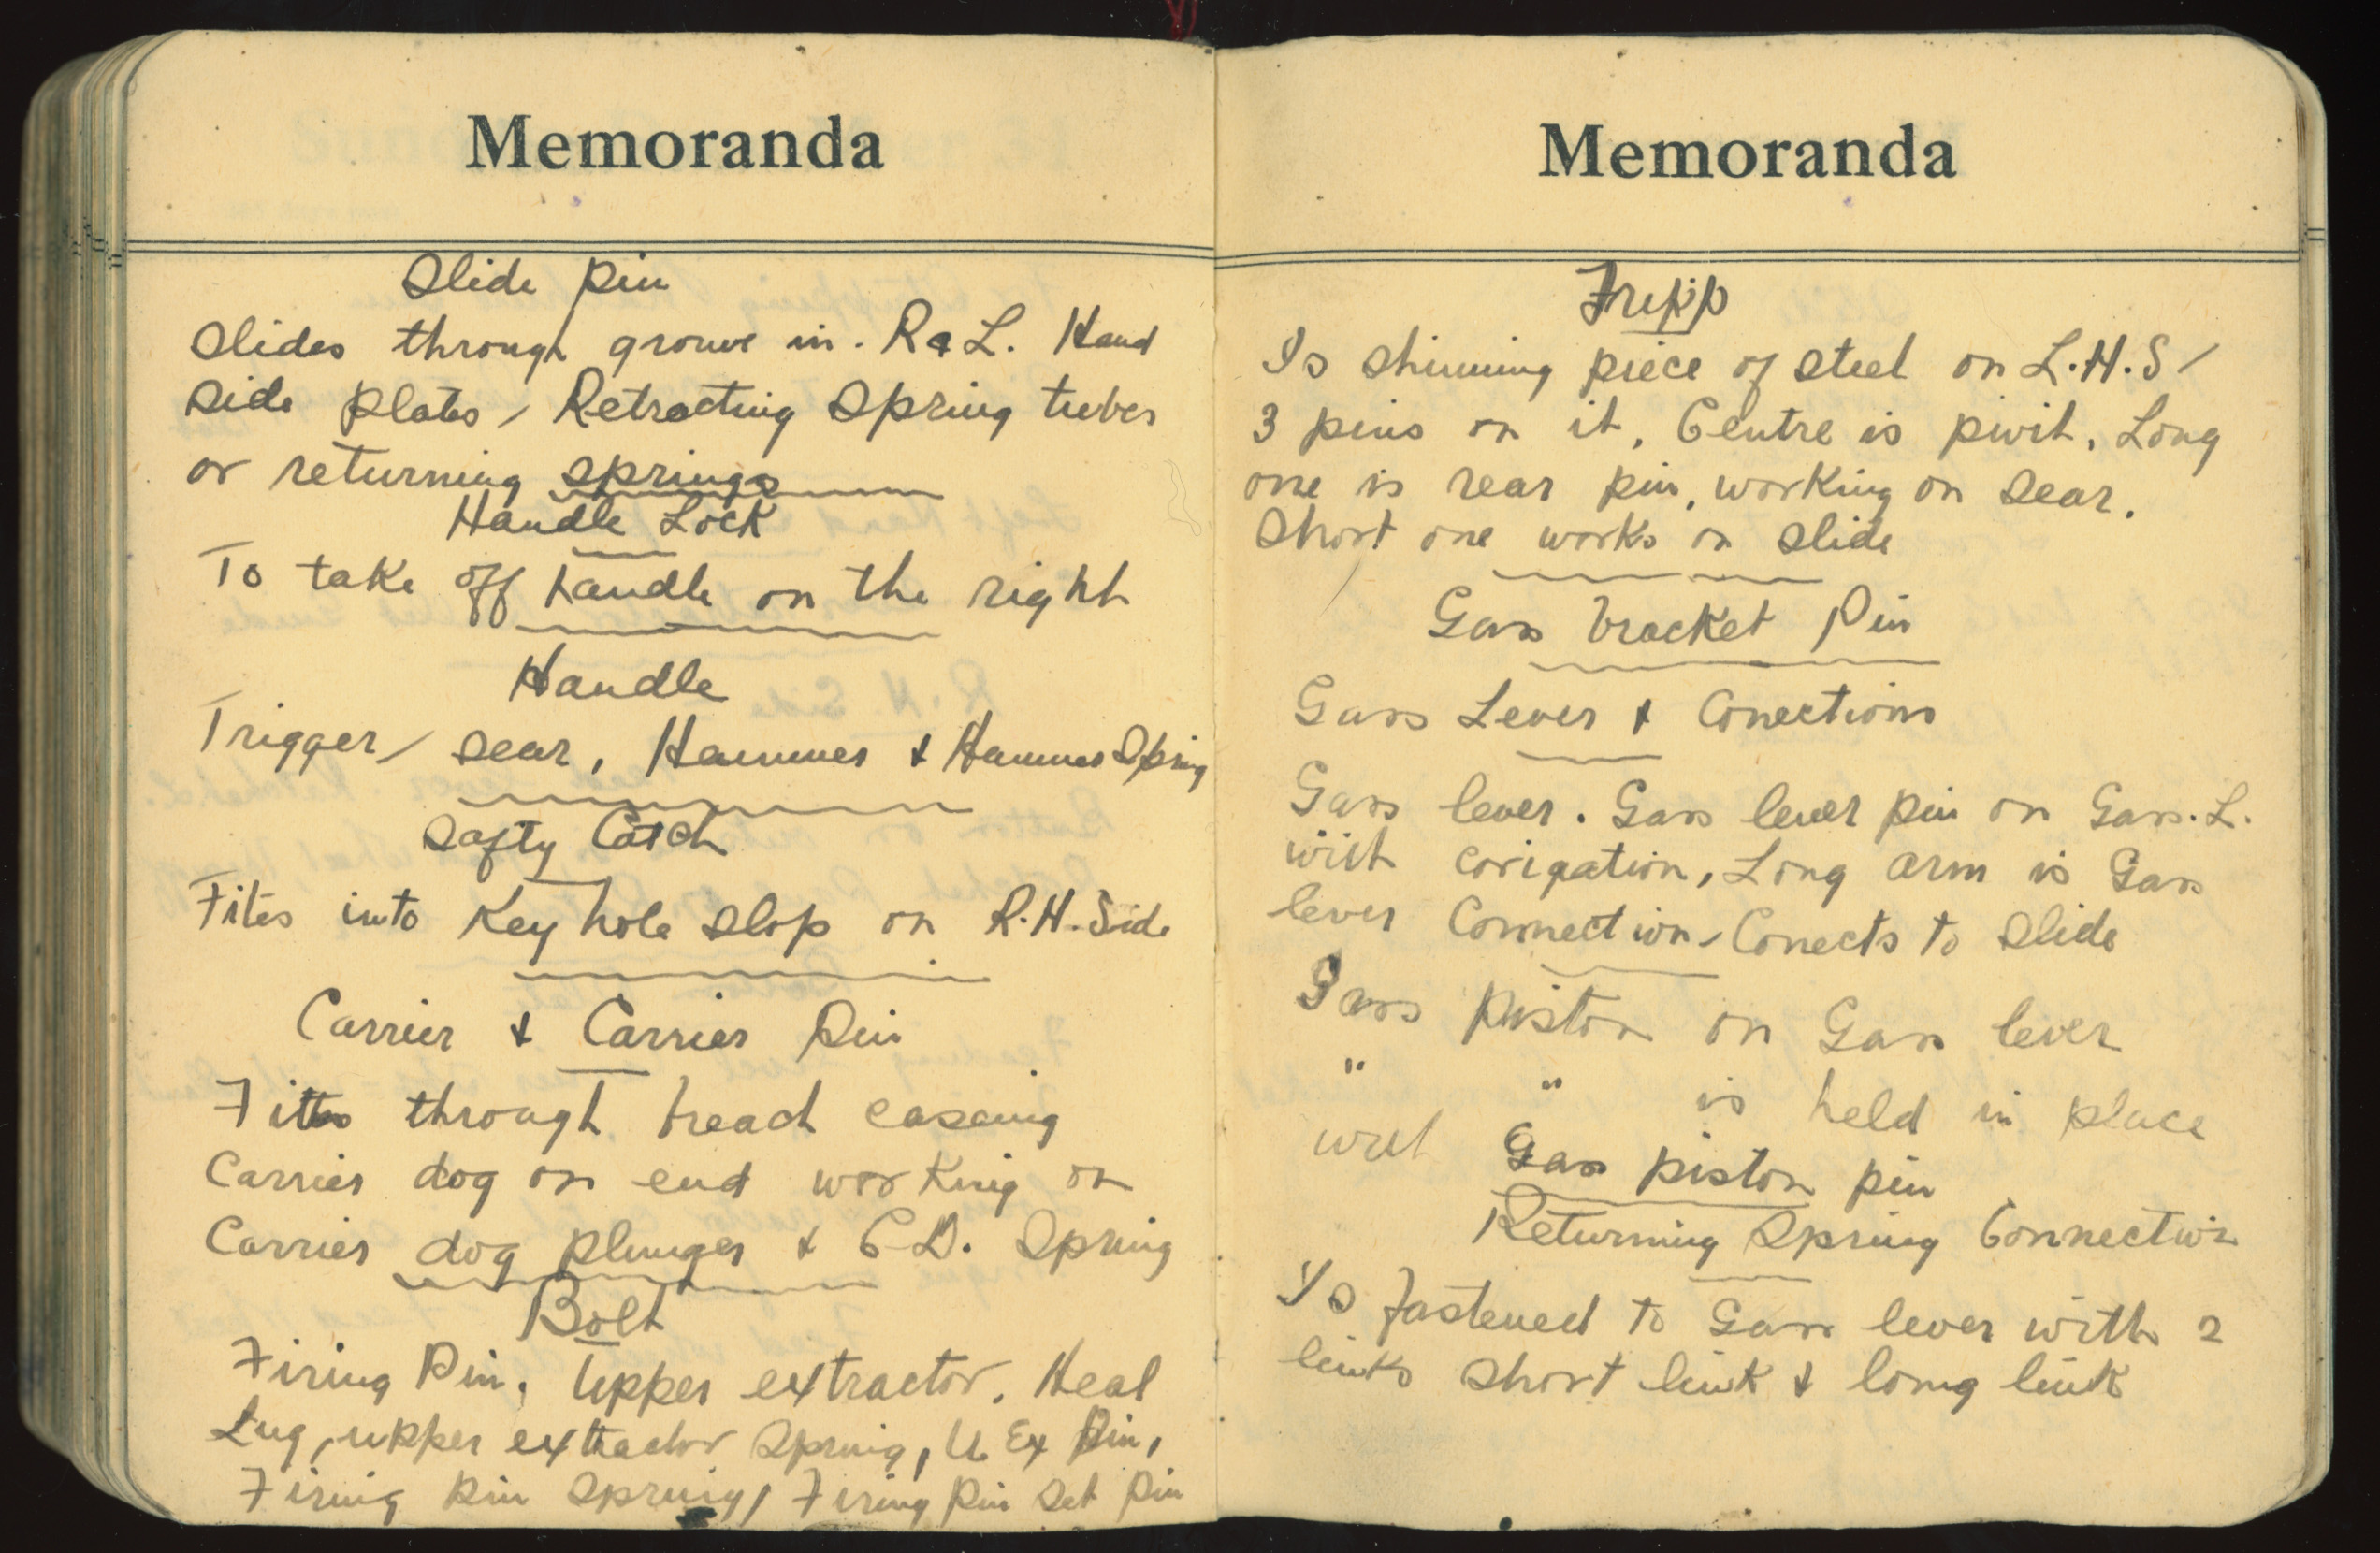 Memoranda
Slide Pin
Slides through grouve in. R & L. Hand
Side Plates, Retracting Spring tubes
or returning springs
Handle Lock
To take off handle on the right
Handle
Trigger, Sear, Hammer & Hammer Spring
Safty Catch
Fites into Key hole slop on R.H. Side
Carrier & Carrier Pin
Fitts through breach caseing
Carrier dog on end working on
Carrier dog plunger & C D. Spring
Bolt
Firing Pin, Upper extractor, Heal
Lug, upper extractor Spring, U Ex Pin,
Firing Pin Spring, Firing Pin Set Pin
Memoranda
Tripp
Is shinning piece of steel on L.H.S,
3 pins on it, Centre is pivit, Long
one is rear pin, working on Sear.
Short one works on slide
Gass bracket Pin
Gass Lever & Conections
Gass lever. Gass lever pin on Gass. L.
with corigation, Long arm is Gass
lever Connection, Conects to Slide
Gass Piston on Gass lever
" " is held in place
with Gass piston pin
Returning Spring Connection
Is fastened to Gass lever with 2
links short link & long link